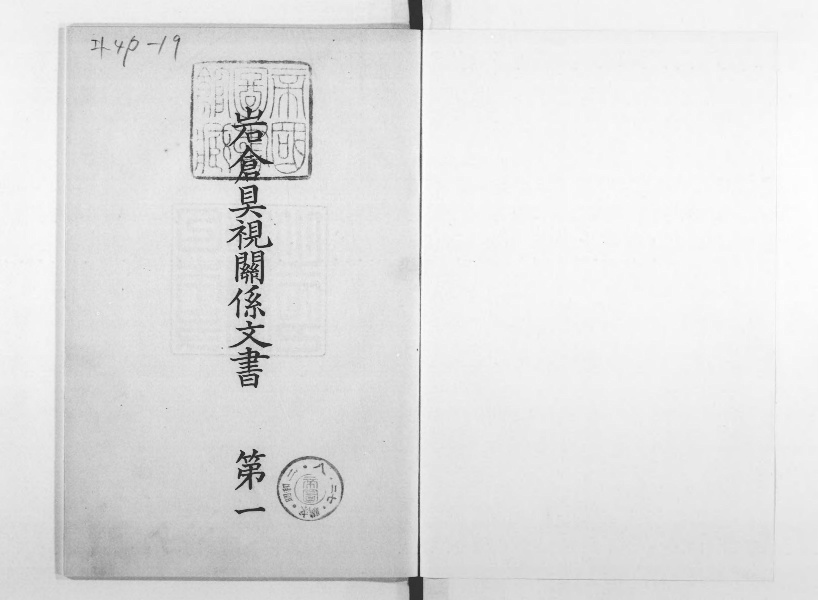 岩倉具視關係文書 第一
帝國
圖書
館藏